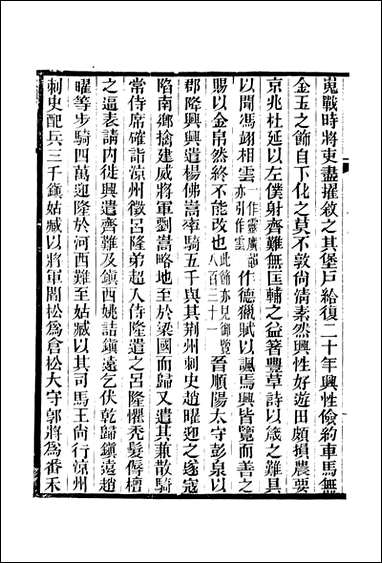 嵬戰時將吏盡擢敘之其堡戶給復二十年興性儉約車馬無
金玉之飾自下化之莫不敦尚清素然興性好遊田頗損農要
京兆杜延以左僕射齊難無匡輔之益著豐草詩以箴之難具
以聞馮翊相雲一作雲亦引作雲作德獵賦以諷焉興皆覽而善之
賜以金帛然終不能改也此節亦見御覽八百三十一晉順陽太守彭泉以
郡降興興遣楊佛嵩率騎五千與其荊州刺史趙曜迎之遂寇
陷南鄉擒建威將軍劉嵩略地至於梁國而歸又遣其兼散騎
常侍席確詣涼州徵呂隆弟超入侍隆遣之呂隆懼禿髮傉檀
之逼表請內徙興遣齊難及鎮西姚詰鎮遠乞伏乾歸鎮遠趙
曜等步騎四萬迎隆於河西難至姑臧以其司馬王尚行涼州
刺史配兵三千鎮姑臧以將軍閻松為倉松太守郭將為番禾